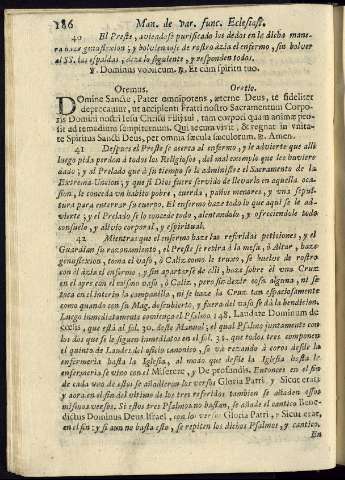 186 Man. de var. func. Eclesiast.
40 El Preste, aviendose purificado los dedos en la dicha mane-
ra haze genuflexion; y bolviendose de rostro àzia el enfermo, sin bolver
al SS. las espaldas, dize lo siguiente, y responden todos.
℣. Dominus vobiscum. ℟. Et cum spiritu tuo.
Oremus. Oratio.
Domine Sancte, Pater omnipotens, æterne Deus, te fideliter
deprecamur, ut accipienti Fratri nostro Sacramentum Corpo-
ris Domini nostri Iesu Christi Filij tui, tam corpori quàm animæ pro-
sit ad remedium sempiternum. Qui tecum vivit, & regnat in vnita-
te Spiritus Sancti Deus, per omnia sæcula sæculorum. ℟. Amen.
41 Despues el Preste se acerca al enfermo, y le advierte que alli
luego pida perdon à todos los Religiosos, del mal exemplo que les huviere
dado; y al Prelado que à su tiempo se le administre el Sacramento de la
Extrema-Uncion; y que si Dios fuere servido de llevarlo en aquella oca-
sion, le conceda un habito pobre, cuerda, paños menores, y una sepul-
tura para enterrar su cuerpo. El enfermo haze todo lo que aqui se le ad-
vierte; y el Prelado se lo concede todo, alentandolo, y ofreciendole todo
consuelo, y alivio corporal, y espiritual.
42 Mientras que el enfermo haze las referidas peticiones, y el
Guardian su razonamiento, el Preste se retira à la mesa, ò Altar, haze
genuflexion, toma el vaso, ò Caliz como le truxo, se buelve de rostro
con èl àzia el enfermo, y sin apartarse de alli, haze sobre èl una Cruz
en el ayre con el mismo vaso, ò Caliz, pero sin dezir cosa alguna, ni se
toca en el interin la campanilla, ni se haze la Cruz tan espaciosamente
como quando con su Mag. descubierto, y fuera del vaso se dà la bendicion.
Luego inmediatamente comiença el Psalmo 148. Laudate Dominum de
cœlis, que està al fol. 30. deste Manual; el qual Psalmo juntamente con
los dos que se le siguen inmediatos en el fol. 31. que todos tres componen
el quinto de Laudes del oficio canonico, se và rezando à coros desde la
enfermeria hasta la Iglesia, al modo que desde la Iglesia hasta la
enfermeria se vino con el Miserere, y De profundis. Entonces en el fin
de cada uno de estos se añadieron los versos Gloria Patri, y Sicut erat;
y aora en el fin del ultimo de los tres referidos tambien se añaden essos
mismos versos. Si estos tres Psalmos no bastan, se añade el cantico Bene-
dictus Dominus Deus Israel, con los versos Gloria Patri, y Sicut erat,
en el fin: y si aun no basta esto, se repiten los dichos Psalmos, y cantico.
En